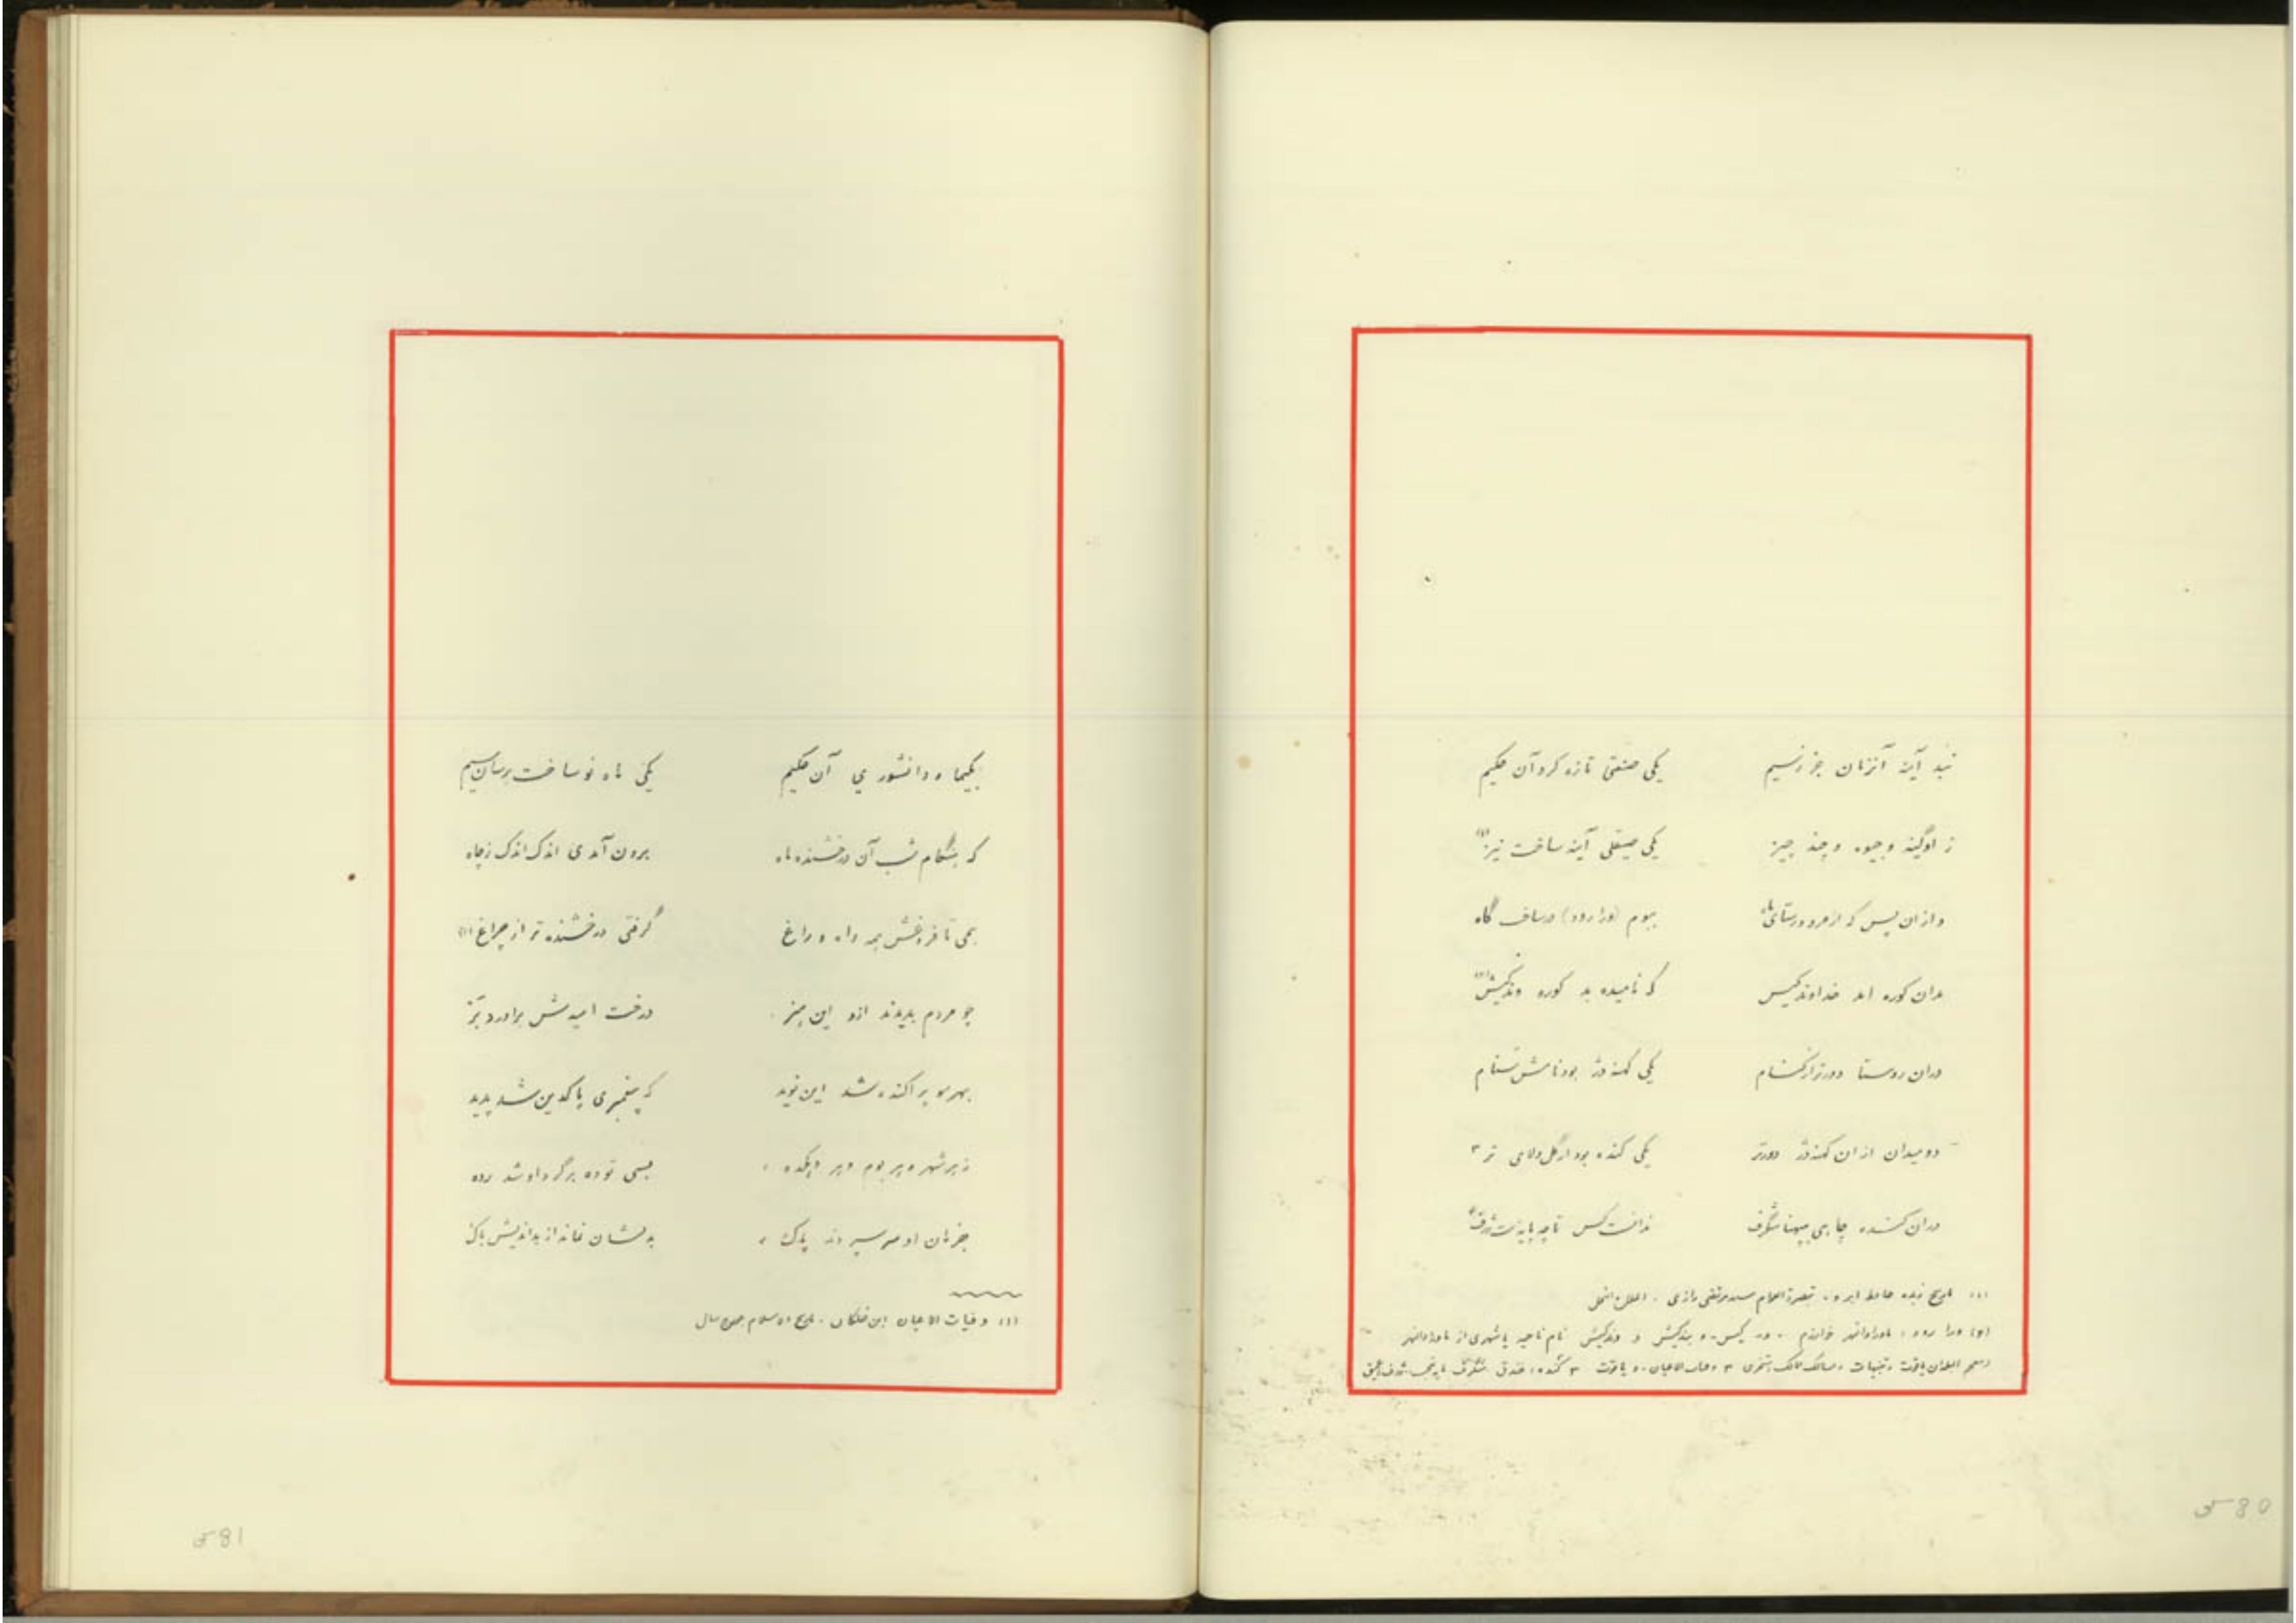 نبد آینه آنزمان جز ز سیم یکی صنعتی تازه کرد آن حکیم
ز اوگینه و جیوه و چند چیز یکی صیقلی آینه ساخت نیز (۱)
و از ان پس که از مرو ببوم (ورا رود)
بدان کوره اند خداوند کیش که نامیده بد کوره وندکیش (۲)
دران روستا دورتر از یکی کهندژ بود نامش سنام
دو میدان ازان کهندژ دورتر یکی کنده بود از گل و لای تر ۳
دران کنده چاهی بپهنا شگرف ندانست کس تا چه پایه است ژرف ۴
(۱) تاریخ زبده حافظ ابرو . تبصرة العوام سید مرتضی رازی . الملل النحل
ورا رود ، ماوراءالنهر خوارزم . کیس . و وندکیش نام ناحیه یا شهری از ماوراءالنهر
معجم البلدان یاقوت مسالک ممالک ۳ وفیات الاعیان . و یاقوت ۳ کنده ، خندق شگرف ژرف عمیق
80
بکیمیا و دانشوری آن حکیم یکی ماه نو ساخت برسان سیم
که هنگام شب آن درخشنده ماه برون آمدی اندک اندک ز چاه
همی تا فروغش همه راه و راغ گرفتی درخشنده تر از چراغ (۱)
چو مردم بدیدند ازو این هنر درخت امیدش براورد بر
بهر سو پراکنده شد این نوید که پیغمبری پاکدین شد پدید
ز هر شهر و هر بوم و هر دهکده بسی توده بر گرد او شد رده
جز نان او سر سپردند پاک بدلشان نماند از بداندیش باک
(۱) وفیات الاعیان ابن خلکان . تاریخ اسلام
81